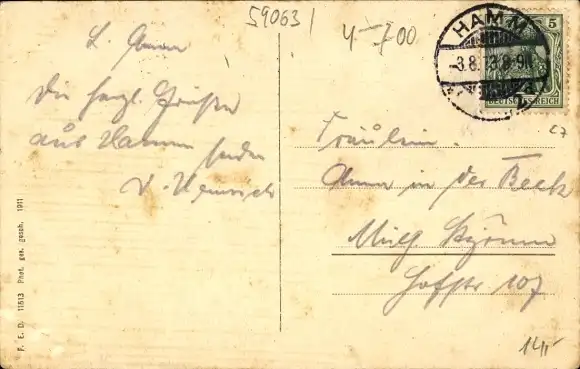 59063
4-700
L. Anna
Die herzl. Grüße
aus Hamm
senden
HAMM
-3.8.13.8-9N
5
DEUTSCHES REICH
Fräulein
Anna in der Beek
Hofstr 107
P. E. D. 11513 Phot. ges. gesch. 1911